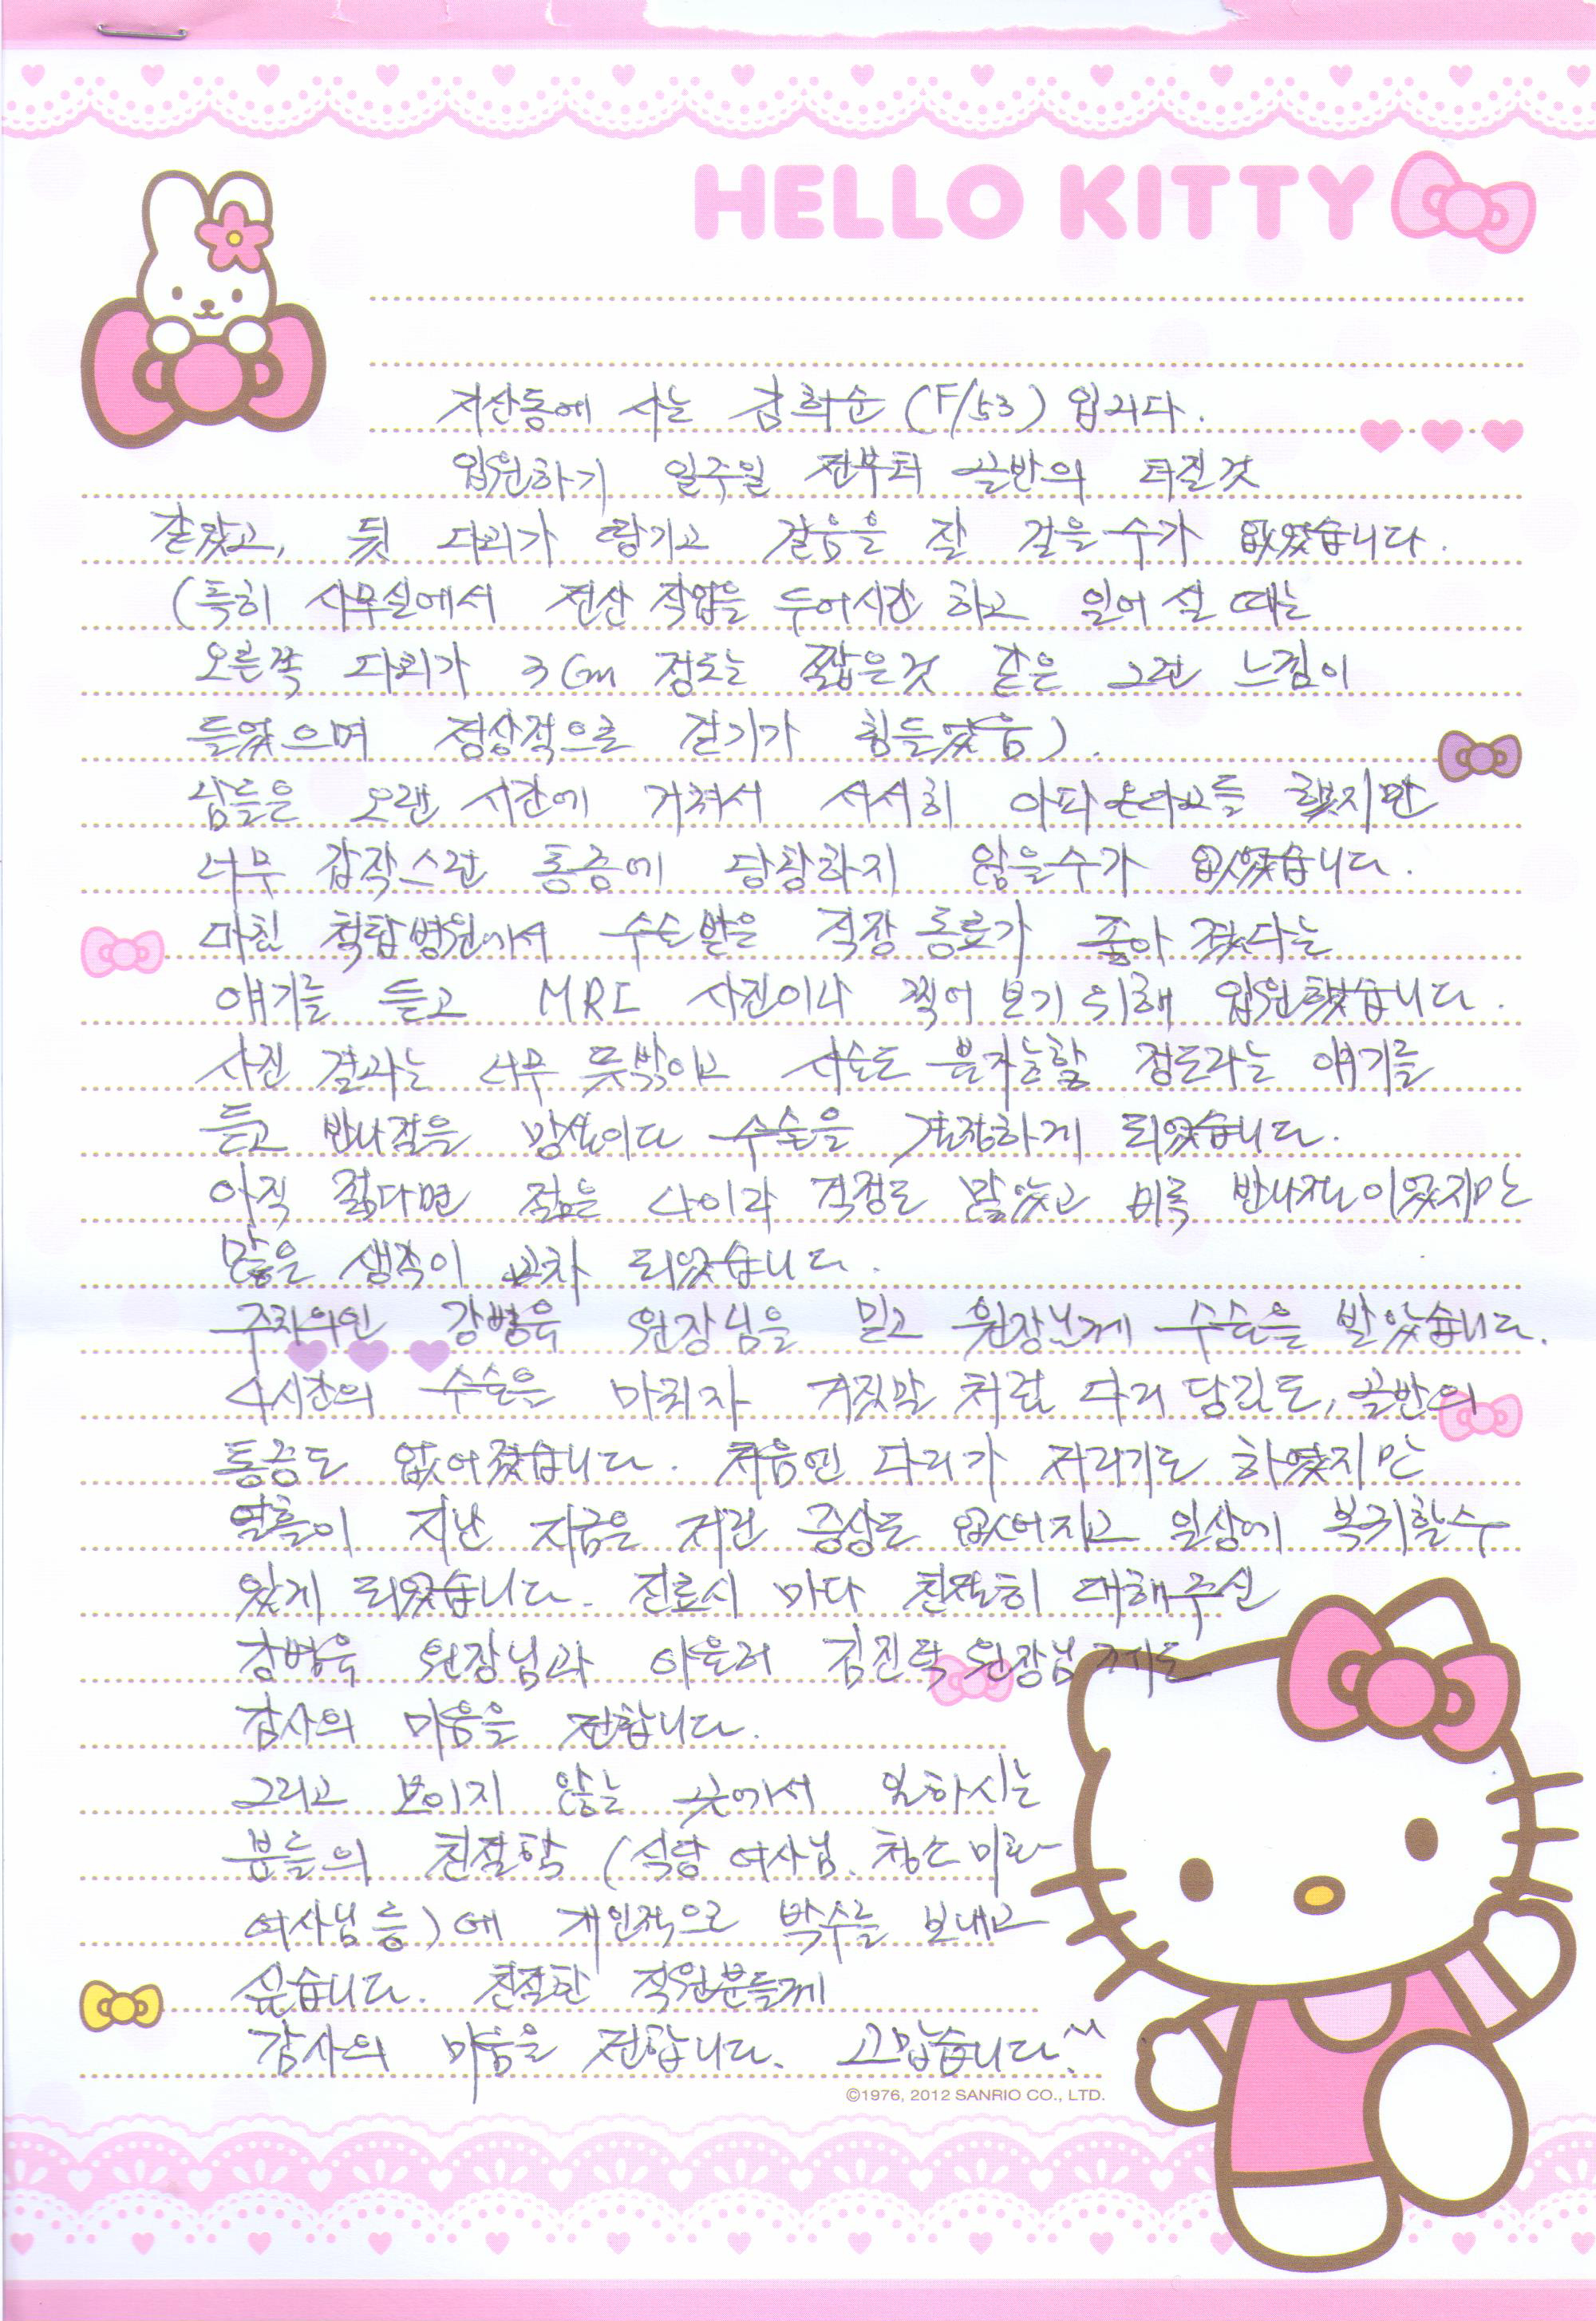 HELLO KITTY
지산동에 사는 김희순 (F/53) 입니다.
입원하기 일주일 전부터 골반의 터질것
같았고, 뒷 다리가 땅기고 걸음을 잘 걸을 수가 없었습니다.
(특히 사무실에서 전산 작업을 두어시간 하고 일어 설 때는
오른쪽 다리가 3Cm 정도는 짧은것 같은 그런 느낌이
들었으며 정상적으로 걷기가 힘들었음).
남들은 오랜 시간에 거쳐서 서서히 아파온다고들 했지만
너무 갑작스런 통증에 당황하지 않을수가 없었습니다.
마침 척탑병원에서 수술받은 직장 동료가 좋아 졌다는
얘기를 듣고 MRI 사진이나 찍어 보기 위해 입원했습니다.
사진 결과는 너무 뜻밖이고 시술도 불가능할 정도라는 얘기를
듣고 반나절을 망설이다 수술을 결정하게 되었습니다.
아직 젊다면 젊은 나이라 걱정도 많았고 비록 반나절이었지만
많은 생각이 교차 되었습니다.
주치의인 강병욱 원장님을 믿고 원장님께 수술을 받았습니다.
4시간의 수술을 마치자 거짓말 처럼 다리 당김도, 골반의
통증도 없어졌습니다. 처음엔 다리가 저리기도 하였지만
열흘이 지난 지금은 저린 증상도 없어지고 일상에 복귀할수
있게 되었습니다. 진료시 마다 친절히 대해주신
강병욱 원장님과 아울러 김진탁 원장님께도
감사의 마음을 전합니다.
그리고 보이지 않는 곳에서 일하시는
분들의 친절함 (식당 여사님. 청소 미화
여사님 등) 에 개인적으로 박수를 보내고
싶습니다. 친절한 직원분들께
감사의 마음을 전합니다. 고맙습니다.^^
©1976, 2012 SANRIO CO., LTD.